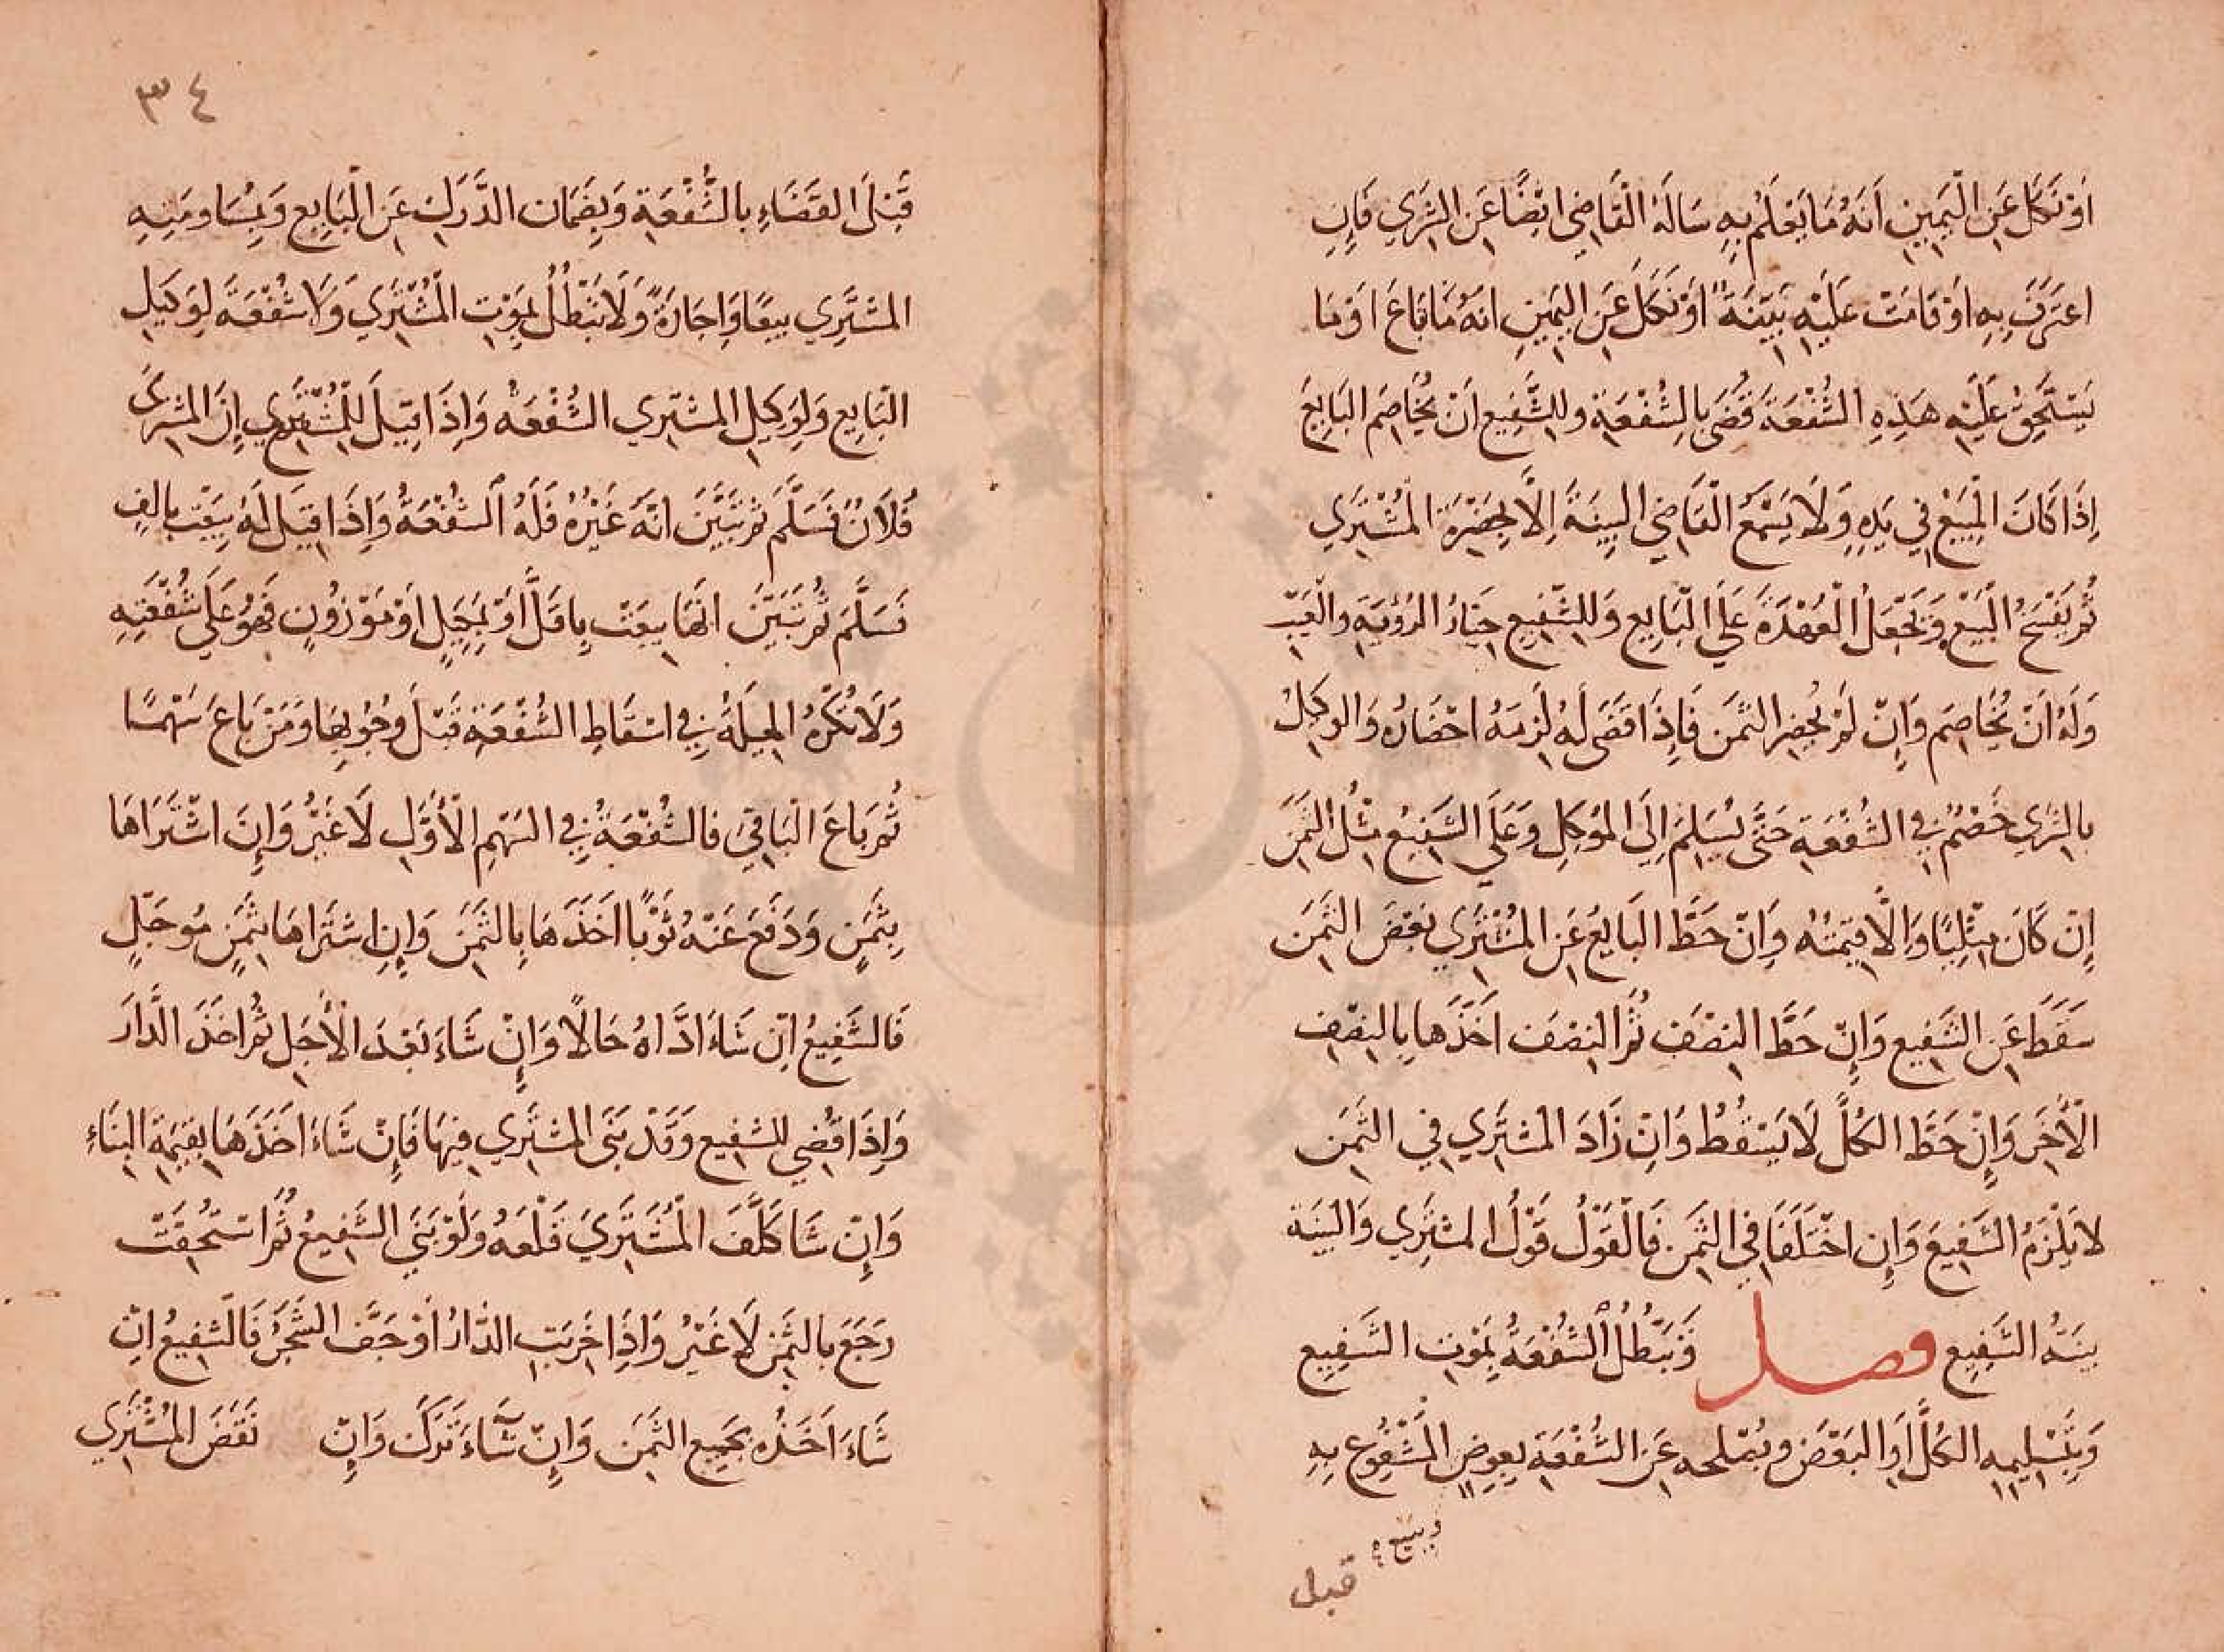 اَوْ نَكَلَ عَنِ الْيَمِينِ اَنَهُ مَا يَعْلَمُ بِهِ سَالَهُ الْقَاضِي ايْضًا عَنِ الشِّرَي فَاِنِ
اعْتَرَفَ بِهِ اوْ قَامَتْ عَلَيْهِ بَيِّنَةٌ اوْ نَكَلَ عَنِ اليَمِينِ انَهُ مَا ابْتَاعَ اوْ مَا
يَسْتَحِقُ عَلَيْهِ هَذِهِ الشُفْعَةَ قُضَى بِالشُفْعَةِ وللشَّفِيعِ اَنْ يُخَاصِمَ البَايِعَ
اِذَا كَانَ الْمَبِيعُ فِي يَدِهِ وَلَا يَسْمَعُ الْقَاضِي البَيِنَةَ اِلَّا بِحَضْرَةِ الْمُشْتَرِي
ثُمَ يَفْسَخُ الْبَيْعَ وَيَجْعَلُ الْعُهْدَةَ عَلَى الْبَايِعِ وَلِلشَّفِيعِ خِيَارُ الرُؤْيَةِ والْعَيْبِ
وَلَهُ اَنْ يُخَاصِمَ وَاِنْ لَمْ يُحْضِرِ الثَّمَنَ فَاِذَا قَضَى لَهُ لَزِمَهُ احْضَارُه وَالوكِيلُ
بِالشِّرَي خَصْمٌ فِي الشُفْعَةِ حَتَّى يُسَلِمَ اِلَى المُوَكِلِ وَعَلَى الشَّفِيعِ مِثْلُ الثَمَنِ
اِنْ كَانَ مِثْلِيًا وَاِلَّا قِيمَتُهُ وَاِنْ حَطَّ البَايِعُ عَنِ المُشْتَرِي بَعْضَ الثَّمَنِ
سَقَطَ عَنِ الشَّفِيعِ وَاِنْ حَطَّ النِصْفَ ثُمَّ النِصْفَ اَخَذَهَا بِالنِصْفِ
الْاَخَرِ وَاِنْ حَطَّ الكُلَّ لَا يَسْقُطُ وَاِنْ زَادَ المُشْتَرِي فِي الثَّمَنِ
لا يَلْزَمُ الشَفِيعَ وَاِنِ اخْتَلَفَا فِي الثَمَنِ فَالْقَوْلُ قَوْلُ المشْتَرِي وَالبَيِنَةُ
بَيِنَةُ الشَّفِيعِ فصل وَتَبْطُلُ الشُفْعَةُ بِمَوْتِ الشَّفِيعِ
وَبِتَسْلِيمِهِ الكُلَّ اَوِ البَعْضَ وبصُلحه عَنِ الشُفْعَةِ بِعِوَضٍ الْمَشْفُوعِ بِهِ
وببيع
قبل
٣٤
قَبْلَ القَضَاءِ بِالشُّفْعَةِ وَبِضَمَانِ الدَّرَكِ عَنِ الْبَايِعِ وَبِمُسَاومَتِهِ
المشتَرِي بيعًا وَاِجَارَةً وَلَا يَبْطُلُ بِمَوْتِ الْمُشْتَرِي وَلَا شُفْعَةَ لِوَكِيلِ
الْبَايِعِ وَلِوَكِيلِ المشتري الشُفْعَةُ وَاِذَا قِيلَ لِلشَّفِيعِ اِنَّ المشترى
فُلَانٌ فَسَلَّمَ ثم تَبَيَّنَ انَّهُ غَيْرُهُ فَلَهُ الشُفْعَةُ وَاِذَا قِيلَ لَهُ بِيعَتْ بِالفٍ
فَسَلَّمَ ثُمَ تَبَيَّنَ انَّهَا بِيعَتْ بِاقَلَّ اَوْ بِمَكِيلٍ اَوْ مَوْزُونٍ فَهُوَ عَلَى شُفْعَتِهِ
وَلَا تُكْرَهُ الحِيلَةُ فِي اسْقَاطِ الشُفْعَةِ قَبْلَ وُجُوبِهَا وَمَنْ بَاعَ سَهْمًا
ثُمَّ بَاعَ الْبَاقِي فالشُفْعَةُ فِي السَهْمِ الْاَوَّلِ لَا غَيْرُ وَاِنِ اشْتَرَاهَا
بِثَمَنٍ وَدَفَعَ عَنْهُ ثَوْبًا اَخَذَهَا بِالثَمَنِ وَاِنِ اشتَرَاهَا بِثَمَنٍ مُوجَلٍ
فَالشَّفِيعُ اِنْ شَاءَ ادَّاهُ حَالًا وَاِنْ شَاءَ بَعْدَ الْاَجَلِ ثُمَ اخَذَ الدَّارَ
وَاِذَا قُضِي للشفِيعِ وَقَدْ بَنَى المُشْتَرِي فِيهَا فَاِنْ شَاءَ اَخَذَهَا بِقِيمَةِ البِنَاءِ
وَاِنْ شَا كَلَّفَ الْمُشْتَرِيَ قَلْعَهُ وَلَوْ بَنَي الشَفِيعُ ثُمَّ اسْتُحِقَتْ
رَجَعَ بِالثَمَنِ لَا غَيْرُ وَاِذَا خَرِبَتِ الدَّارُ اوْ جَفَّ الشَّجَرُ فَالشَفِيعُ اِنْ
شَاءَ اَخَذَهُ بِجَمِيعِ الثَمَنِ وَاِنْ شَاءَ تَرَكَ وَاِنْ نَقَضَ المُشْتَرِي